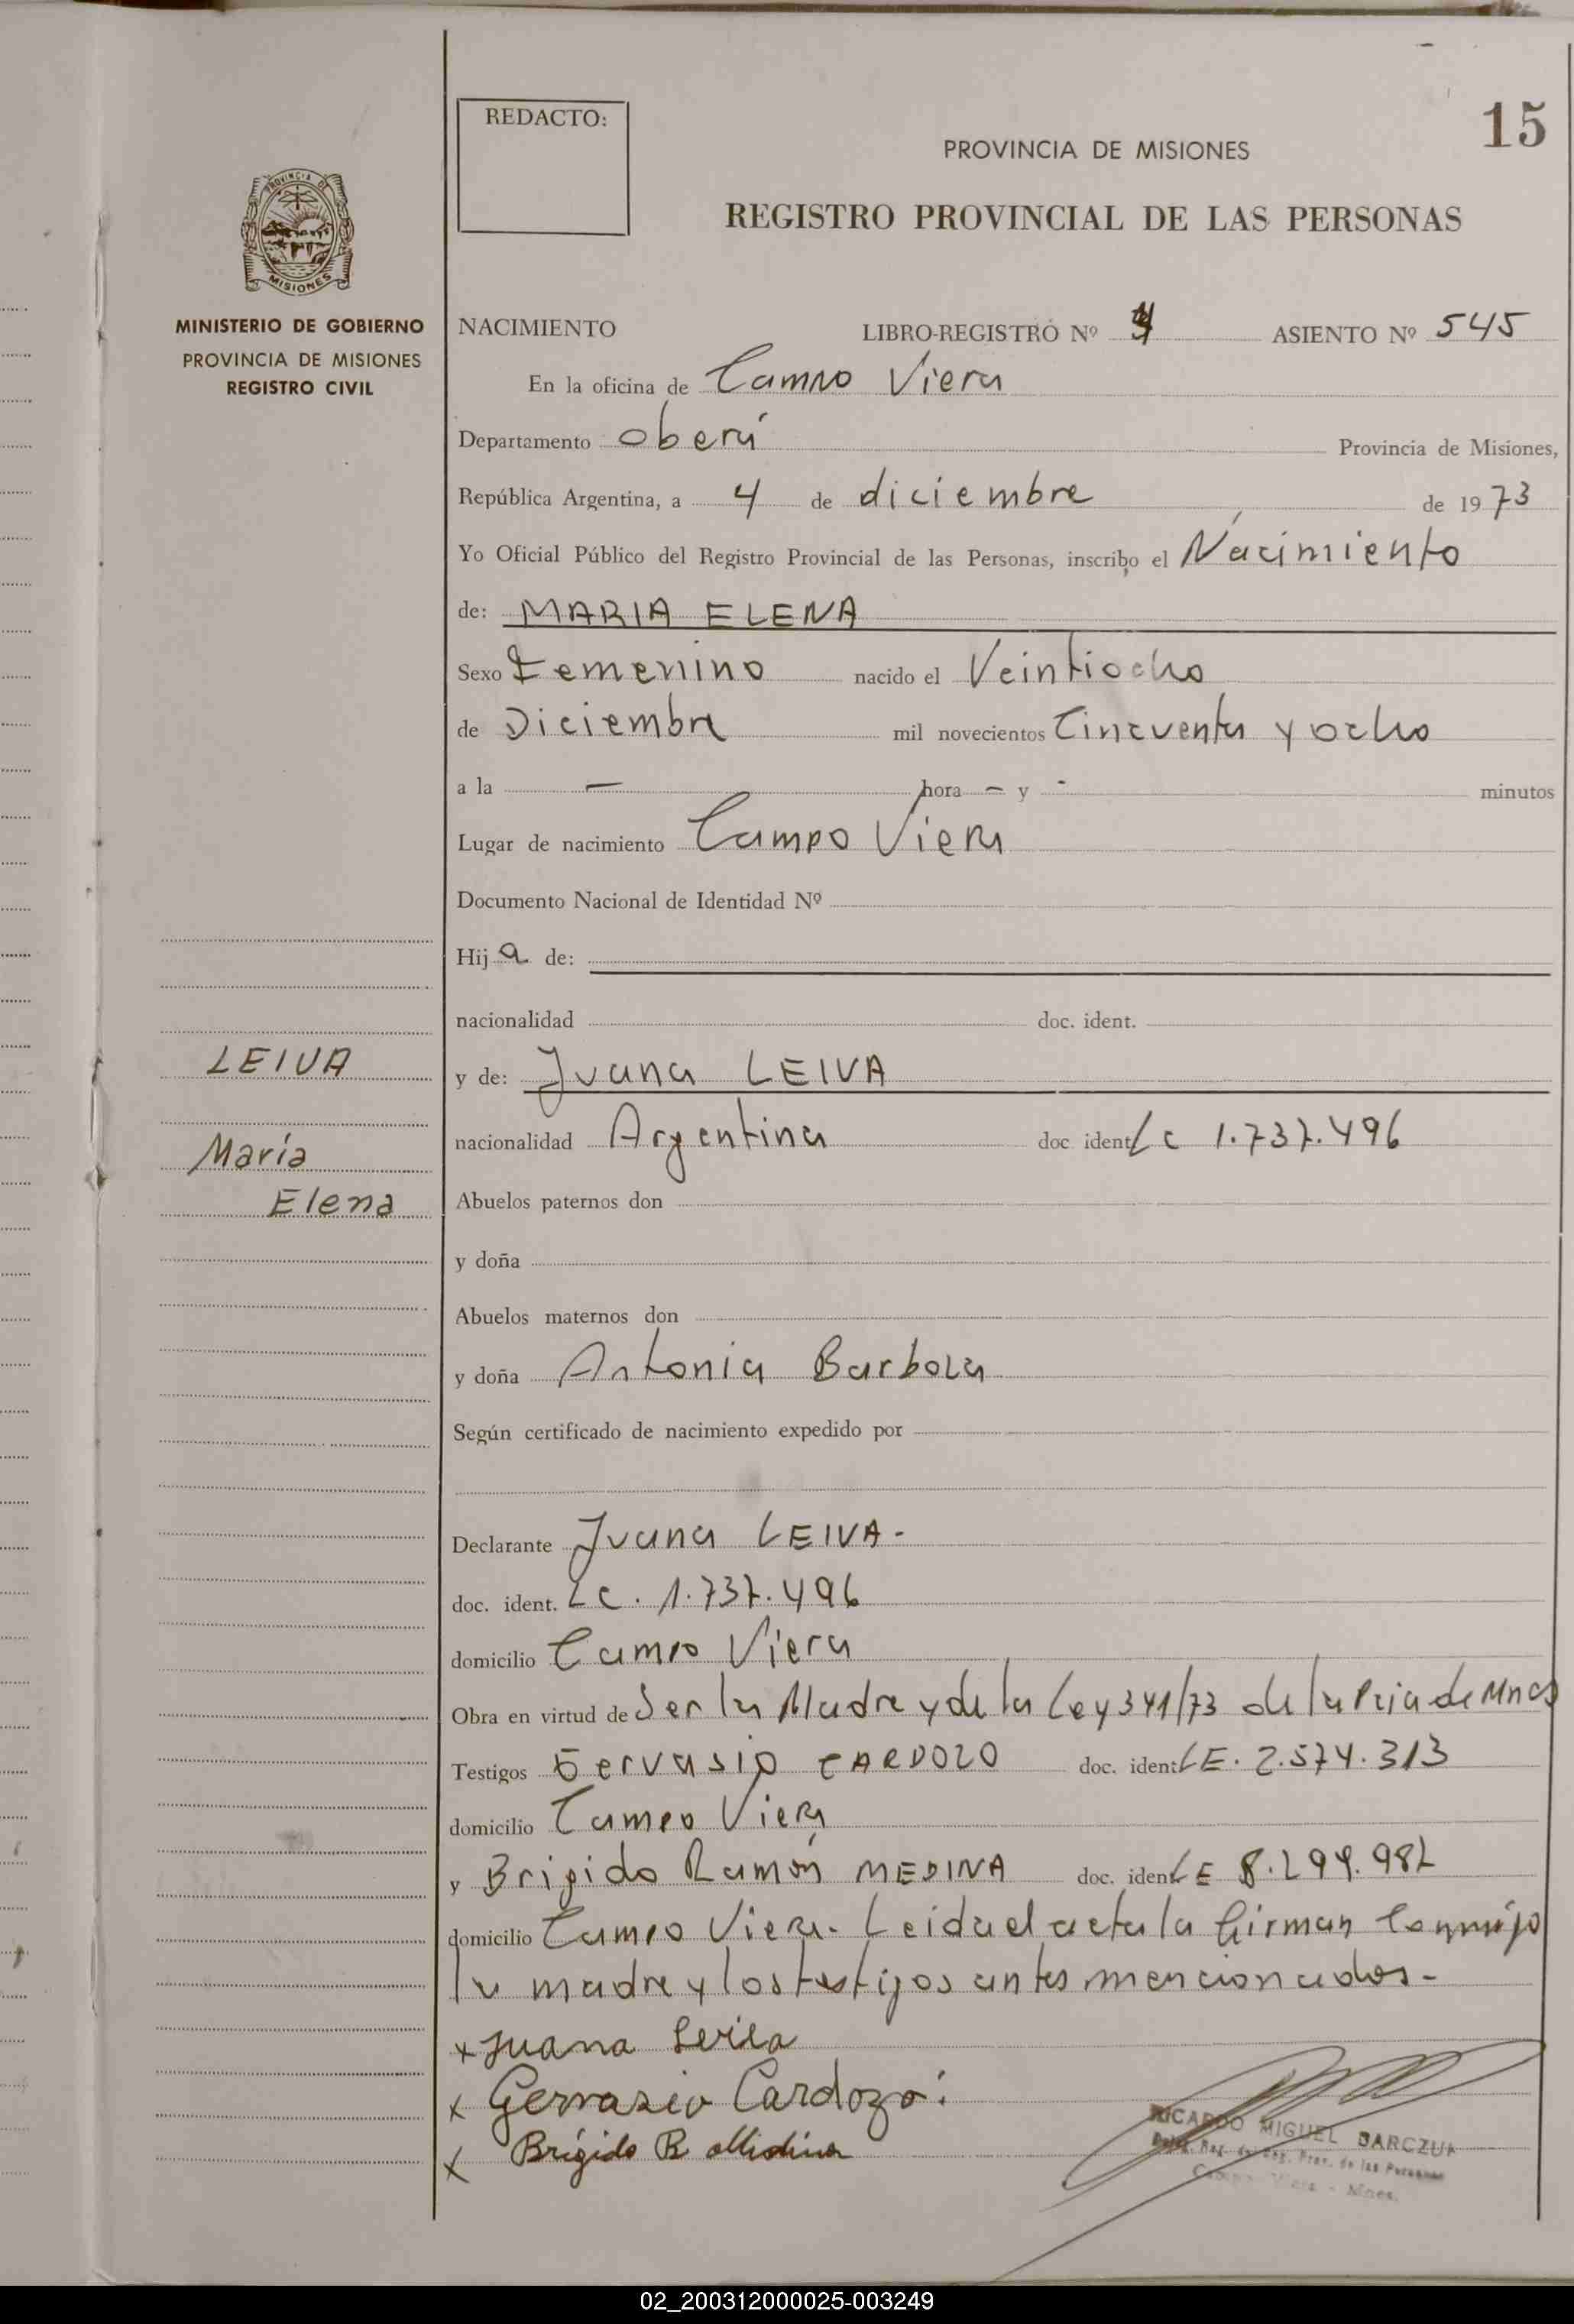 15
REDACTO:
PROVINCIA DE MISIONES
REGISTRO PROVINCIAL DE LAS PERSONAS
PROVINCIA DE
MISIONES
MINISTERIO DE GOBIERNO
PROVINCIA DE MISIONES
REGISTRO CIVIL
NACIMIENTO LIBRO-REGISTRO Nº ASIENTO Nº 545
En la oficina de Campo Viera
Departamento Oberá Provincia de Misiones,
República Argentina, a 4 de diciembre de 1973
Yo Oficial Público del Registro Provincial de las Personas, inscribo el Nacimiento
de: MARIA ELENA
Sexo Femenino nacido el Veintiocho
de Diciembre mil novecientos Cincuenta y ocho
a la — hora – y - minutos
Lugar de nacimiento Campo Viera
Documento Nacional de Identidad Nº
Hij a de:
nacionalidad doc. ident.
LEIVA
y de: Juana LEIVA
nacionalidad Argentina doc. ident LC 1.737.496
María
Elena
Abuelos paternos don
y doña
Abuelos maternos don
y doña Antonia Barboza
Según certificado de nacimiento expedido por
Declarante Juana LEIVA-
doc. ident. LC. 1.737.496
domicilio Campo Viera
Obra en virtud de Ser la Madre y de la Ley 341/73 de la Pcia de Mnes
Testigos Gervasio CARDOZO doc. ident LE. 2.574.313
domicilio Campo Viera
y Brigido Ramón MEDINA doc. ident LE 8.299.982
domicilio Campo Viera. Leida el acta la firman conmigo
la madre y los testigos antes mencionados-
x Juana Leiva
x Gervasio Cardozo
x Brígido R Medina
RICARDO MIGUEL
02_200312000025-003249